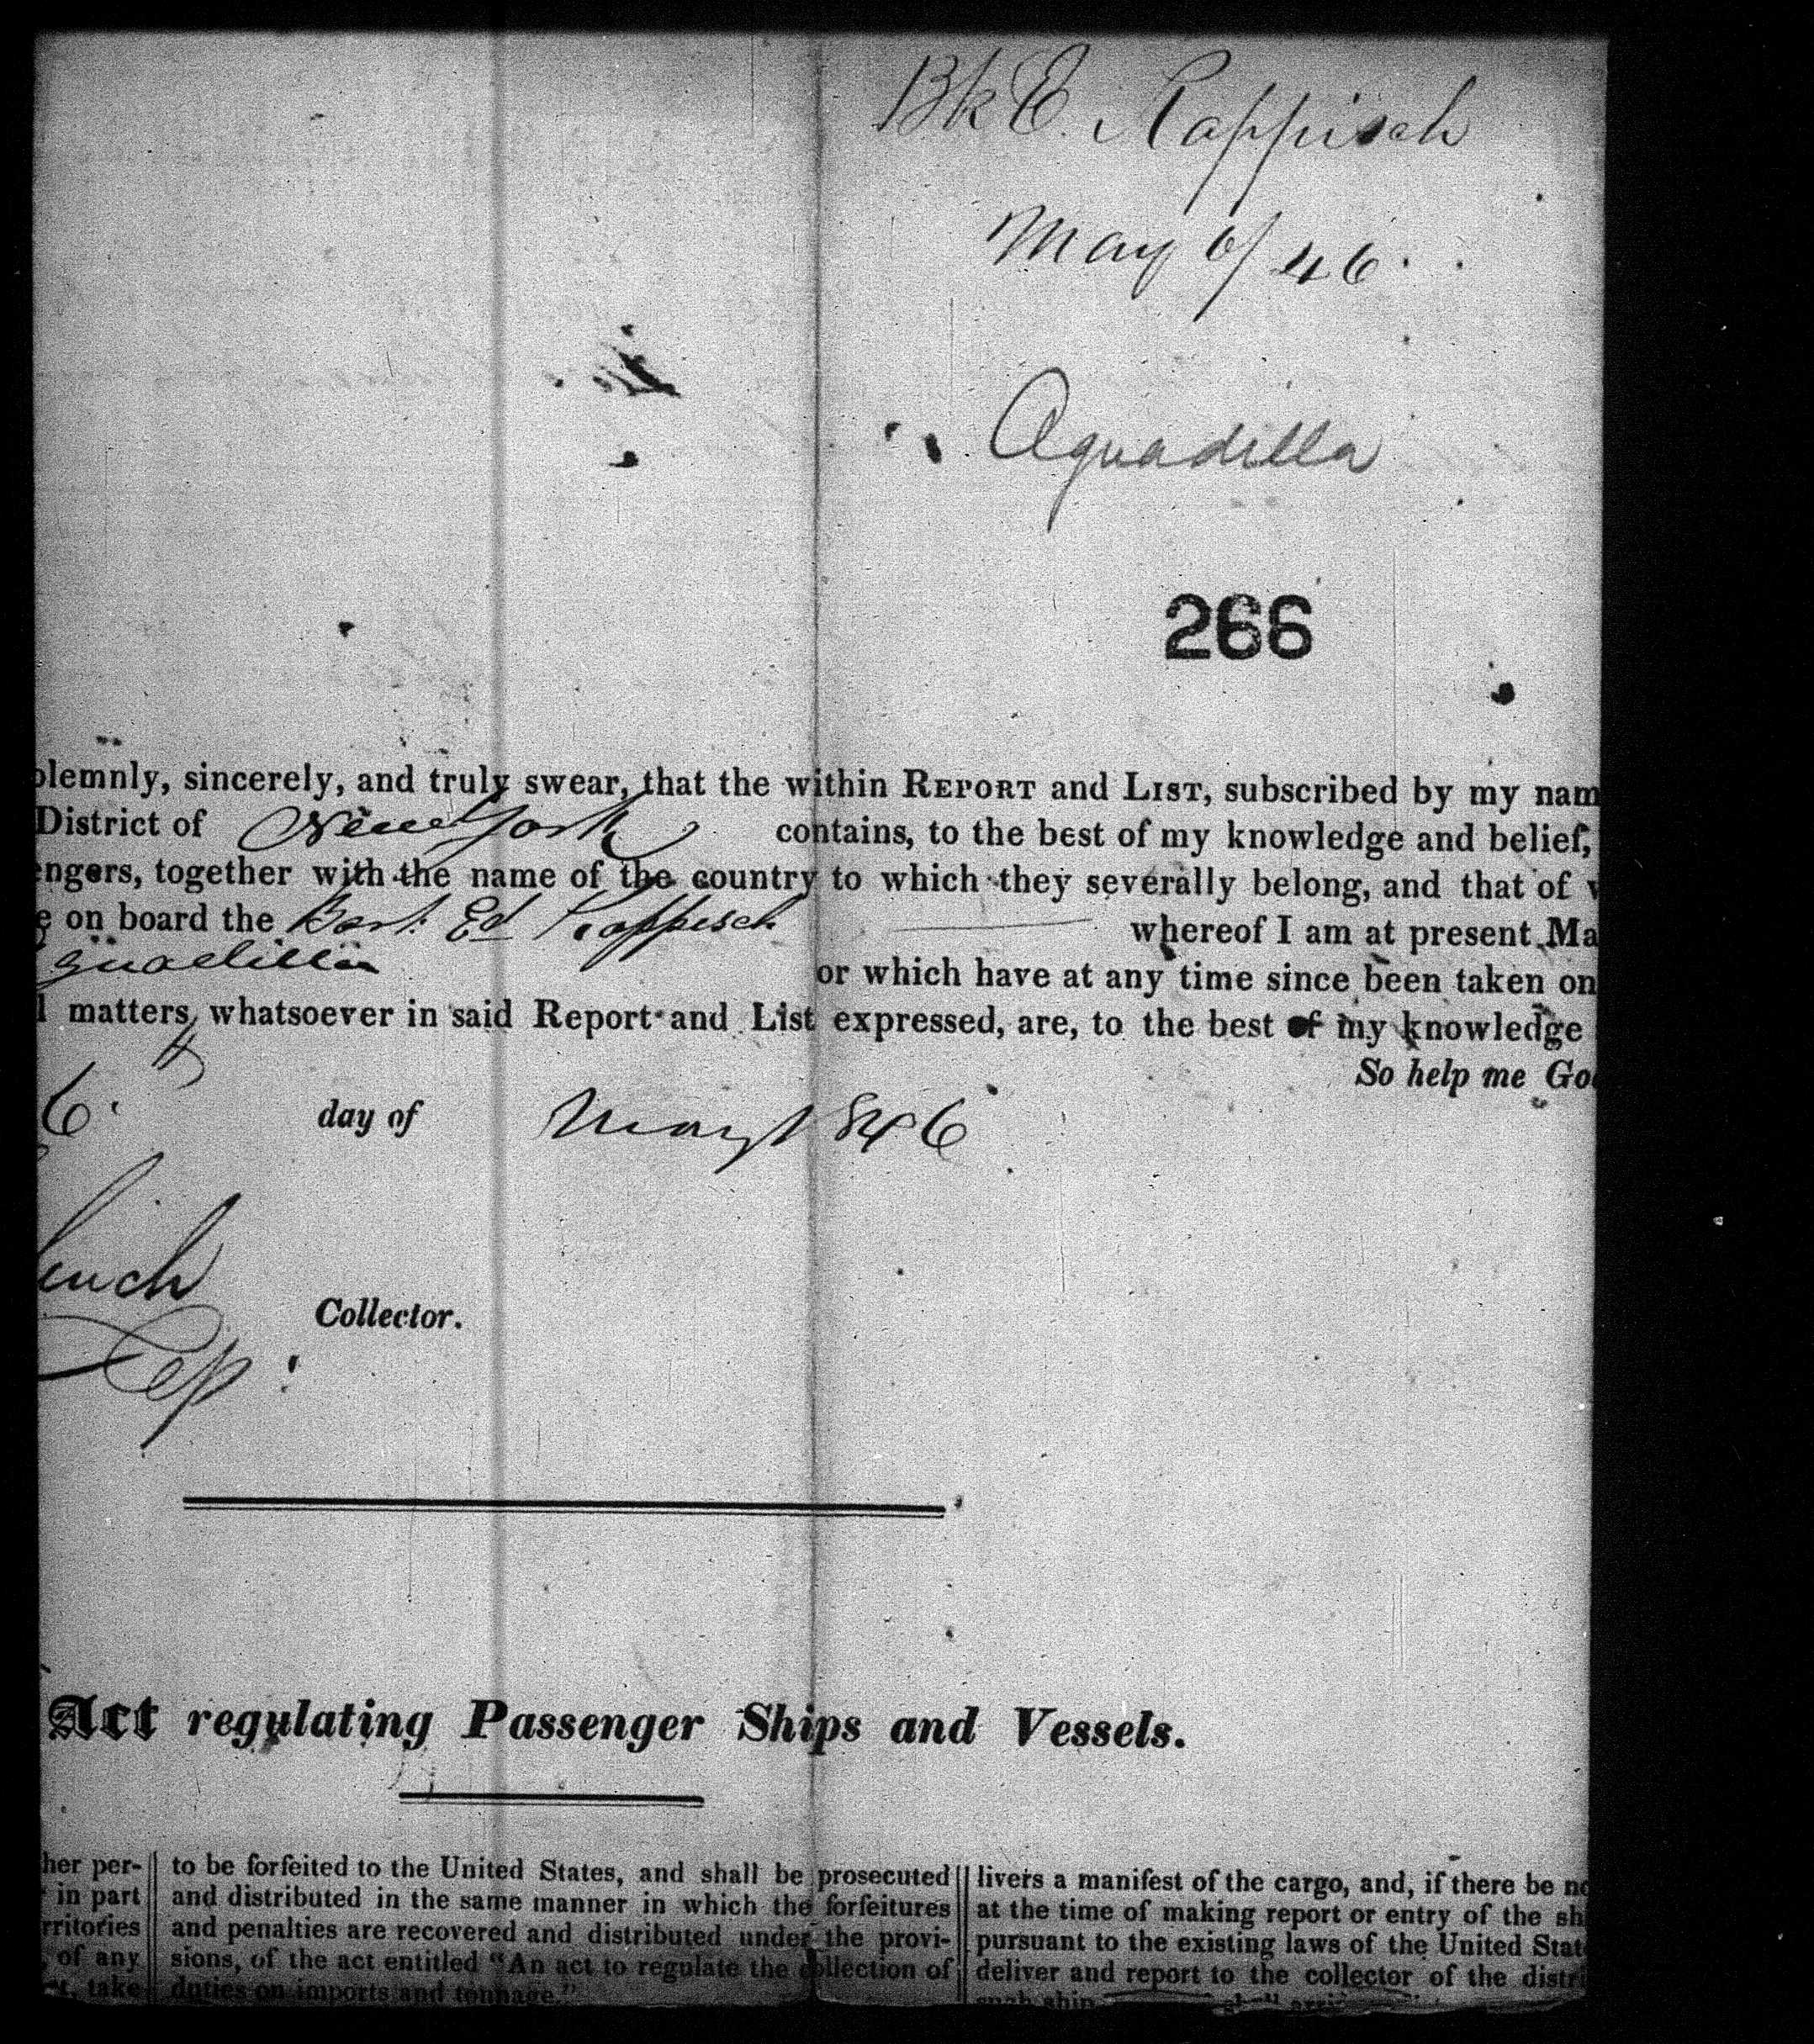 Bk E. Kappisch
May 6/46.
Aguadilla
266
olemnly, sincerely, and truly swear, that the within REPORT and LIST, subscribed by my nam
District of New York contains, to the best of my knowledge and belief,
engers, together with the name of the country to which they severally belong, and that of
e on board the Bark Ed Kappisch whereof I am at present Ma
guadilla or which have at any time since been taken on
l matters whatsoever in said Report and List expressed, are, to the best of my knowledge
So help me Go
6. day of May 1846
Collector.
Dep
Act regulating Passenger Ships and Vessels.
her per-
in part
rritories
of any
take
to be forfeited to the United States, and shall be prosecuted
and distributed in the same manner in which the forfeitures
and penalties are recovered and distributed under the provi-
sions, of the act entitled "An act to regulate the collection of
duties on imports and tonnage."
livers a manifest of the cargo, and, if there be no
at the time of making report or entry of the sh
pursuant to the existing laws of the United Stat
deliver and report to the collector of the distri
such ship